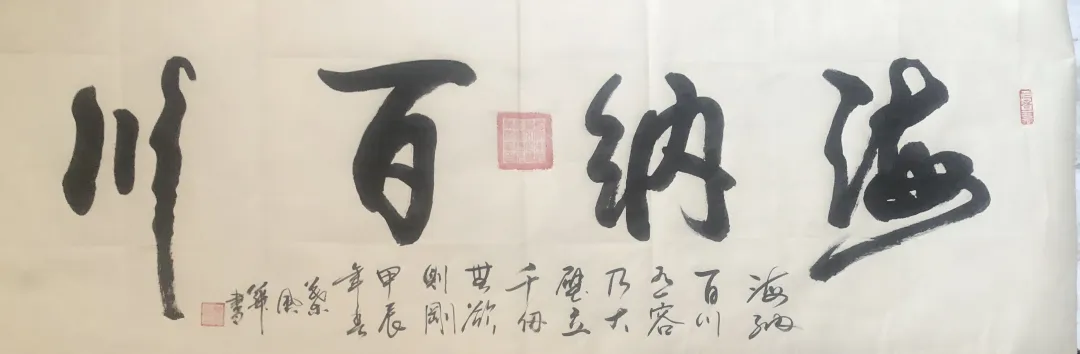 海納百川
海納
百川
有容
乃大
壁立
千仞
無欲
則剛
甲辰
年春
華書